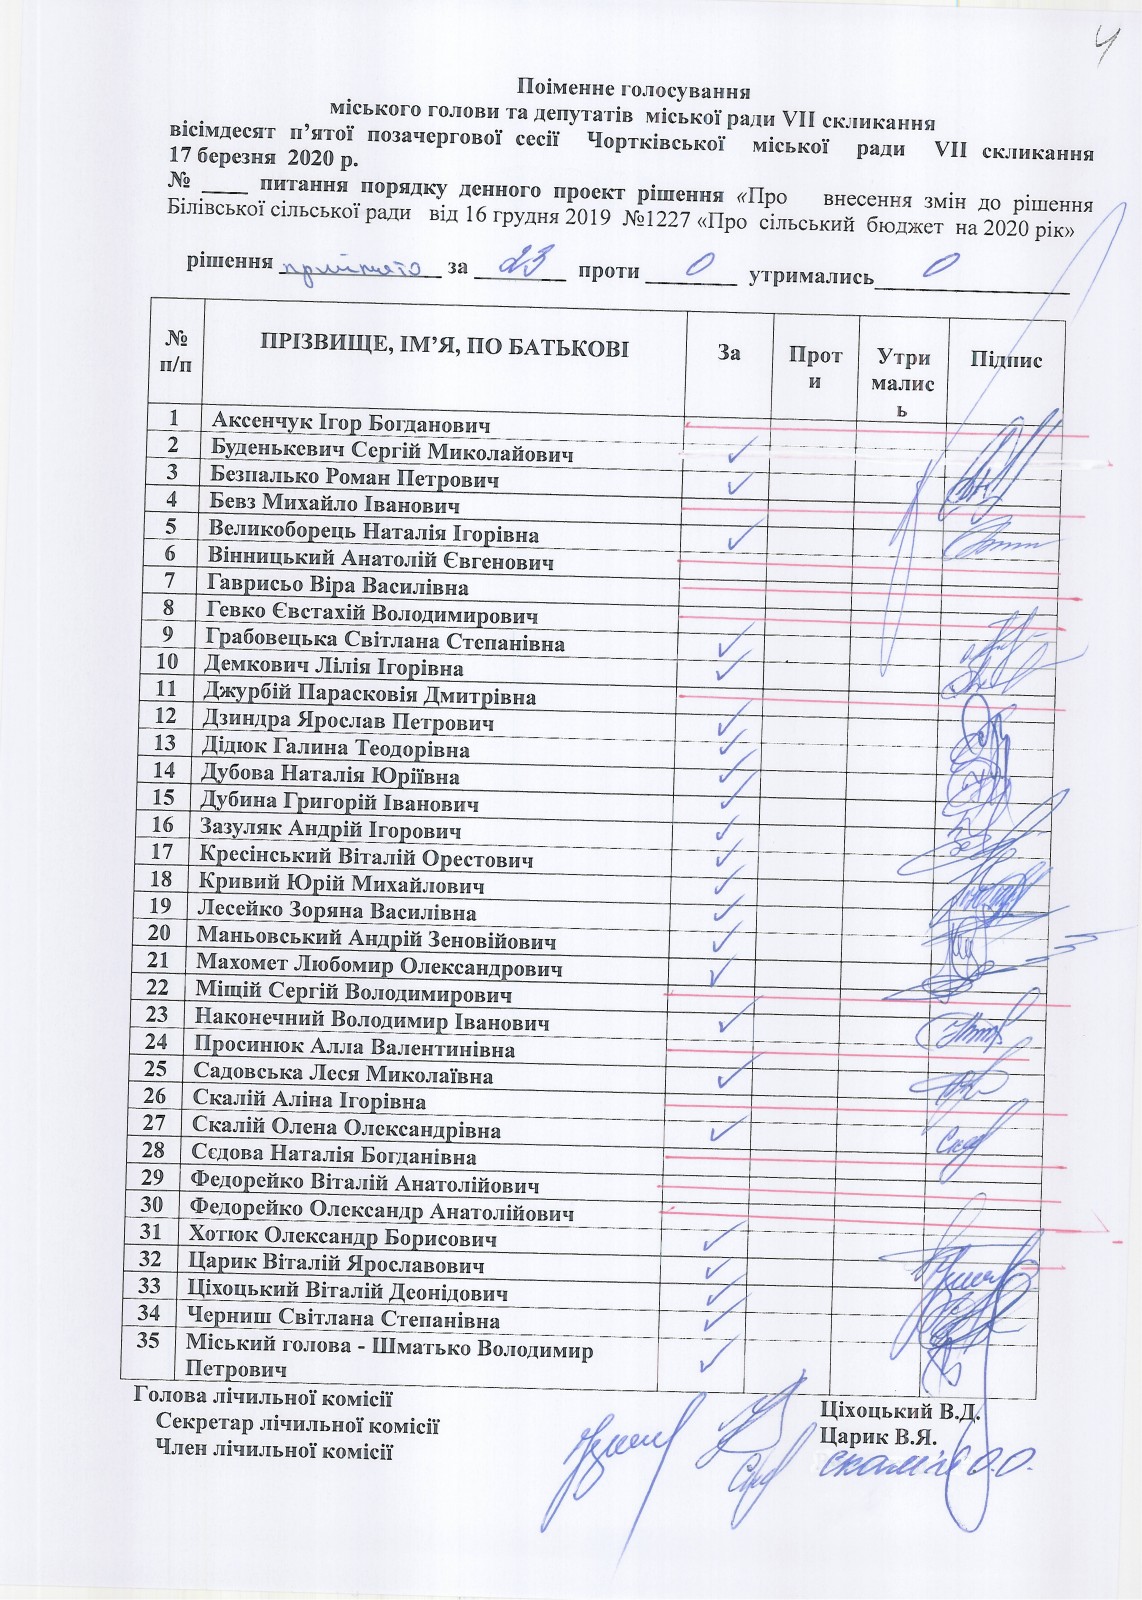 4
Поіменне голосування
міського голови та депутатів міської ради VII скликання
вісімдесят п’ятої позачергової сесії Чортківської міської ради VII скликання
17 березня 2020 р.
№ ____ питання порядку денного проект рішення «Про внесення змін до рішення
Білівської сільської ради від 16 грудня 2019 №1227 «Про сільський бюджет на 2020 рік»
рішення прийнято за 23 проти 0 утримались 0
№ п/п ПРІЗВИЩЕ, ІМ’Я, ПО БАТЬКОВІ За Проти Утрималиcь Підпис
1 Аксенчук Ігор Богданович
2 Буденькевич Сергій Миколайович
3 Безпалько Роман Петрович
4 Бевз Михайло Іванович
5 Великоборець Наталія Ігорівна
6 Вінницький Анатолій Євгенович
7 Гаврисьо Віра Василівна
8 Гевко Євстахій Володимирович
9 Грабовецька Світлана Степанівна
10 Демкович Лілія Ігорівна
11 Джурбій Парасковія Дмитрівна
12 Дзиндра Ярослав Петрович
13 Дідюк Галина Теодорівна
14 Дубова Наталія Юріївна
15 Дубина Григорій Іванович
16 Зазуляк Андрій Ігорович
17 Кресінський Віталій Орестович
18 Кривий Юрій Михайлович
19 Лесейко Зоряна Василівна
20 Маньовський Андрій Зеновійович
21 Махомет Любомир Олександрович
22 Міщій Сергій Володимирович
23 Наконечний Володимир Іванович
24 Просинюк Алла Валентинівна
25 Садовська Леся Миколаївна
26 Скалій Аліна Ігорівна
27 Скалій Олена Олександрівна
28 Сєдова Наталія Богданівна
29 Федорейко Віталій Анатолійович
30 Федорейко Олександр Анатолійович
31 Хотюк Олександр Борисович
32 Царик Віталій Ярославович
33 Ціхоцький Віталій Деонідович
34 Черниш Світлана Степанівна
35 Міський голова - Шматько Володимир
Петрович
Голова лічильної комісії Ціхоцький В.Д.
Секретар лічильної комісії Царик В.Я.
Член лічильної комісії Скалій О.О.